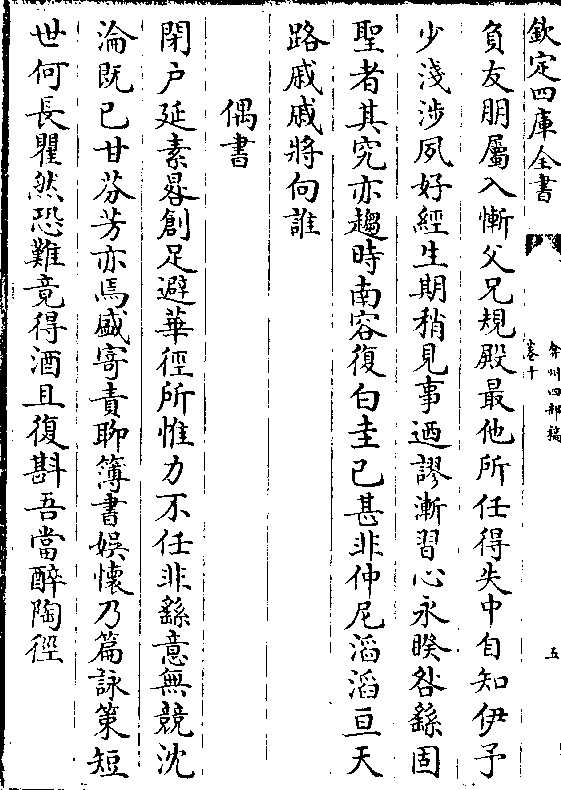 欽定四庫全書
弇州四部稿
卷十
五
負友朋屬入慚父兄規殿最他所任得失中自知伊予
少淺涉夙好經生期稍見事迺謬漸習心永睽咎繇固
聖者其究亦趨時南容復白圭已甚非仲尼滔滔亘天
路戚戚將何誰
偶書
閉户延素晷創足避華徑所惟力不任非繇意無競沈
淪既已甘芬芳亦焉盛寄責聊簿書娱懷乃篇詠策短
世何長瞿然恐難竟得酒且復斟吾當醉陶徑